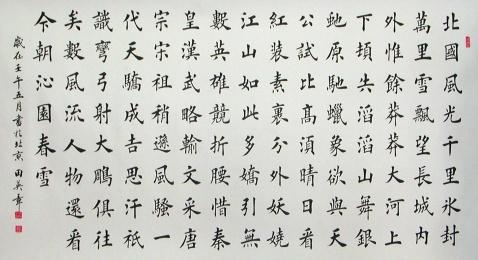 北國風光千里冰封
萬里雪飄望長城内
外惟餘莽莽大河上
下頓失滔滔山舞銀
虵原馳蠟象欲與天
公試比髙須晴日看
紅裝素裹分外妖嬈
江山如此多嬌引無
數英雄競折腰惜秦
皇漢武略輸文采唐
宗宋祖稍遜風騷一
代天驕成吉思汗祇
識彎弓射大鵰俱往
矣數風流人物還看
今朝沁園春雪
歲在壬午五月書於北京 田英章